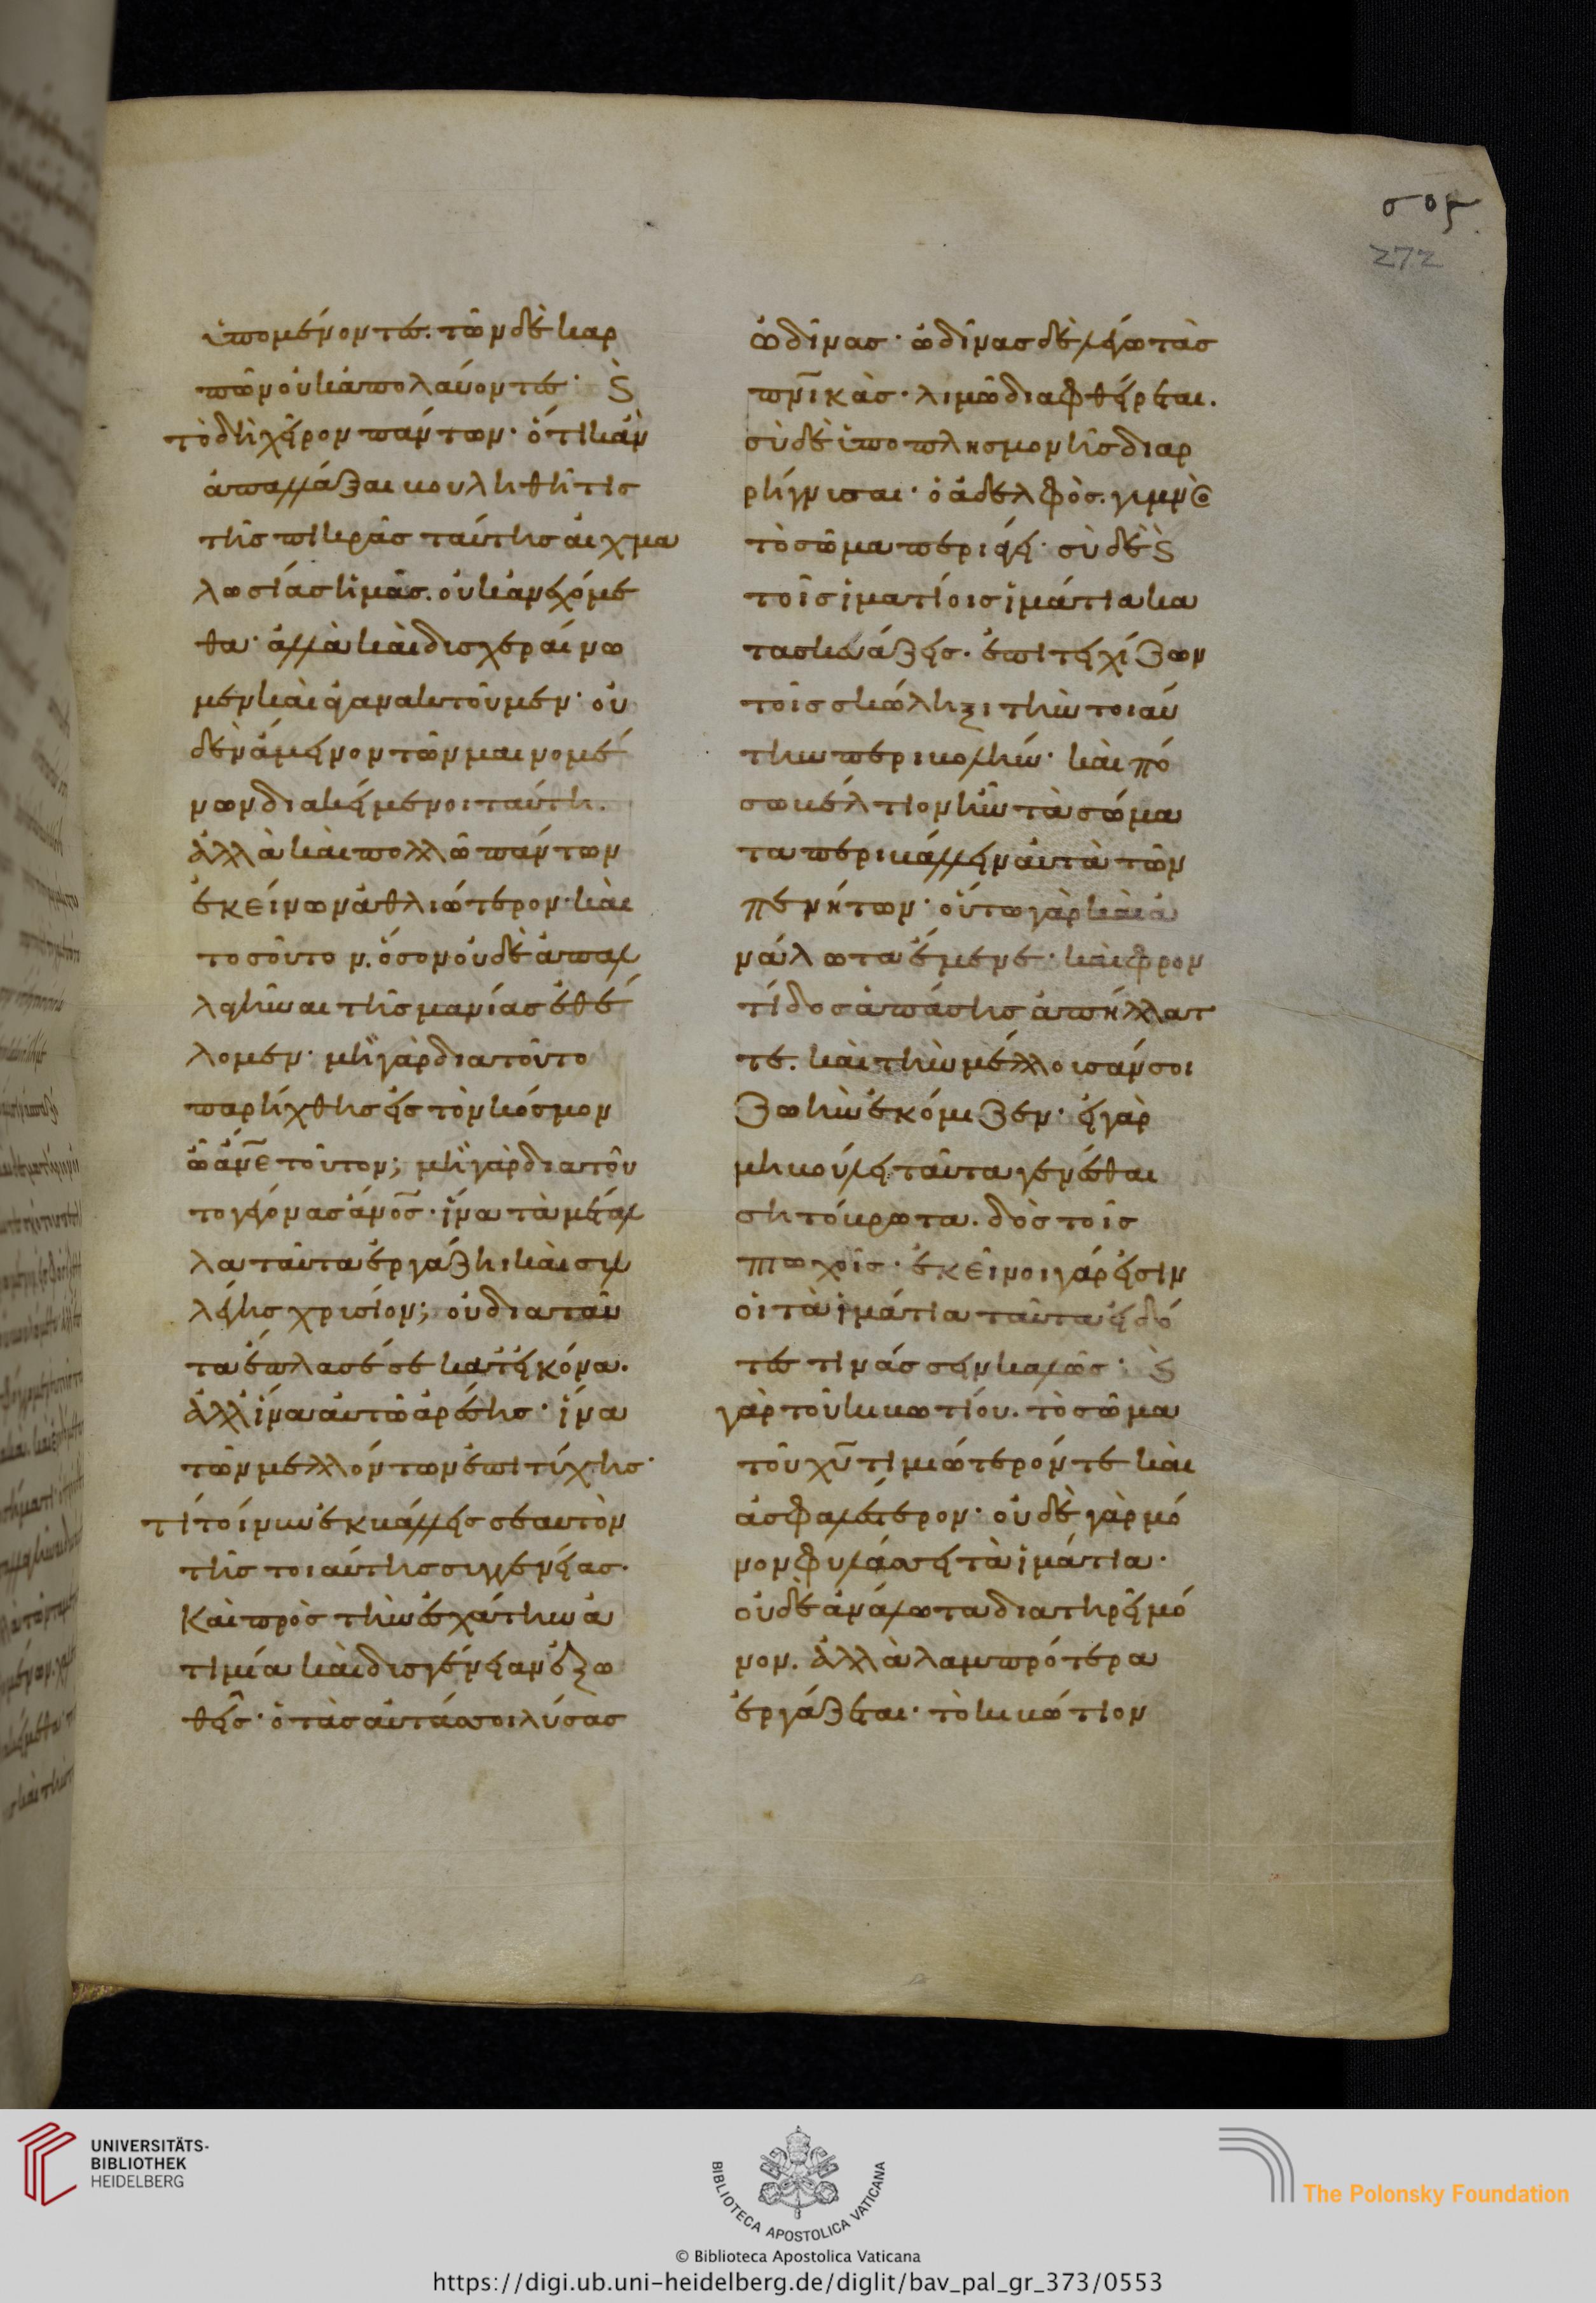 σοϛ
272
ὑπομένοντες. τῶν δὲ καρ
πῶν οὐκ ἀπολαύοντες· ϗ
τὸ δὴ χεῖρον πάντων· ὅτι κἂν
ἀπαλλάξαι βουληθῆ τίς
τῆς πικρᾶς ταύτης αἰχμα
λωσίας ἡμᾶς. οὐκ ἀνεχόμε
θα· ἀλλὰ καὶ δυσχεραίνω
μεν καὶ ἀγανακτοῦμεν· οὐ
δὲν ἄμεινον τῶν μαινομέ
νων διακείμενοι ταύτη.
ἀλλὰ καὶ πολλῶ πάντων
ἐκείνων ἀθλιώτερον· καὶ
τοσοῦτον. ὅσον οὐδὲ ἀπαλ
λαγῆναι τῆς μανίας ἐθέ
λομεν· μὴ γὰρ διατοῦτο
παρήχθης εἰς τὸν κόσμον
ὦ ἄν̅ε τοῦτον; μὴ γὰρ διατοῦ
το γέγονας ἄν̅ος· ἵνα τὰ μέταλ
λα ταῦτα ἐργάζη· καὶ συλ
λέγης χρυσίον; οὐ διαταῦ
τα ἔπλασέ σε κατεικόνα.
ἀλλ ἵνα αὐτῶ ἀρέσης· ἵνα
τῶν μελλόντων ἐπιτύχης·
τί τοίνυν ἐκβάλλεις σεαυτὸν
τῆς τοιαύτης συγγενείας·
καὶ πρὸς τὴν ἐσχάτην ἀ
τιμία καὶ δυσγένειαν ἐξω
θεῖς· ὁ τὰς αὐτάς σοι λύσας
ὠδῖνας· ὠδῖνας δὲ λέγω τὰς
πν̅ικὰς· λιμῶ διαφθείρεται.
σὺ δὲ ὑπο πλησμονῆς διαρ
ρήγνυσαι· ὁ ἀδελφὸς. γυμνῶ
τὸ σῶμα περιάγει· σὺ δὲ ϗ
τοῖς ἱματίοις ἱμάτια κα
τασκευάζεις. ἐπιτειχίζων
τοῖς σκώληξι τὴν τοιαύ
την περιβολήν· καὶ πό
σω βέλτιον ἦν τὰ σώμα
τα περιβάλλειν αὐτὰ τῶν
πενήτων· οὕτω γὰρ καὶ ἀ
νάλωτα ἔμενε· καὶ φρον
τίδος ἁπάσης ἀπήλλατ
τε. καὶ τὴν μέλλουσάν σοι
ζωὴν ἐκόμιζεν· εἰ γὰρ
μὴ βούλει ταῦτα γενέσθαι
σητόβρωτα. δὸς τοῖς
πτωχοῖς· ἐκεῖνοι γάρ εἰσιν
οἱ τὰ ἱμάτια ταῦτα εἰδό
τες τινάσσειν καλῶς· ϗ
γὰρ τοῦ κιβωτίου. τὸ σῶμα
τοῦ χ̅υ τιμιώτερόν τε καὶ
ἀσφαλέστερον· οὐδὲ γὰρ μό
νον φυλάσσει τὰ ἱμάτια·
οὐδὲ ἀνάλωτα διατηρεῖ μό
νον. ἀλλὰ λαμπρότερα
ἐργάζεται· τὸ κιβώτιον
UNIVERSITÄTS-
BIBLIOTHEK
HEIDELBERG
BIBLIOTECA APOSTOLICA VATICANA
The Polonsky Foundation
© Biblioteca Apostolica Vaticana
https://digi.ub.uni-heidelberg.de/diglit/bav_pal_gr_373/0553